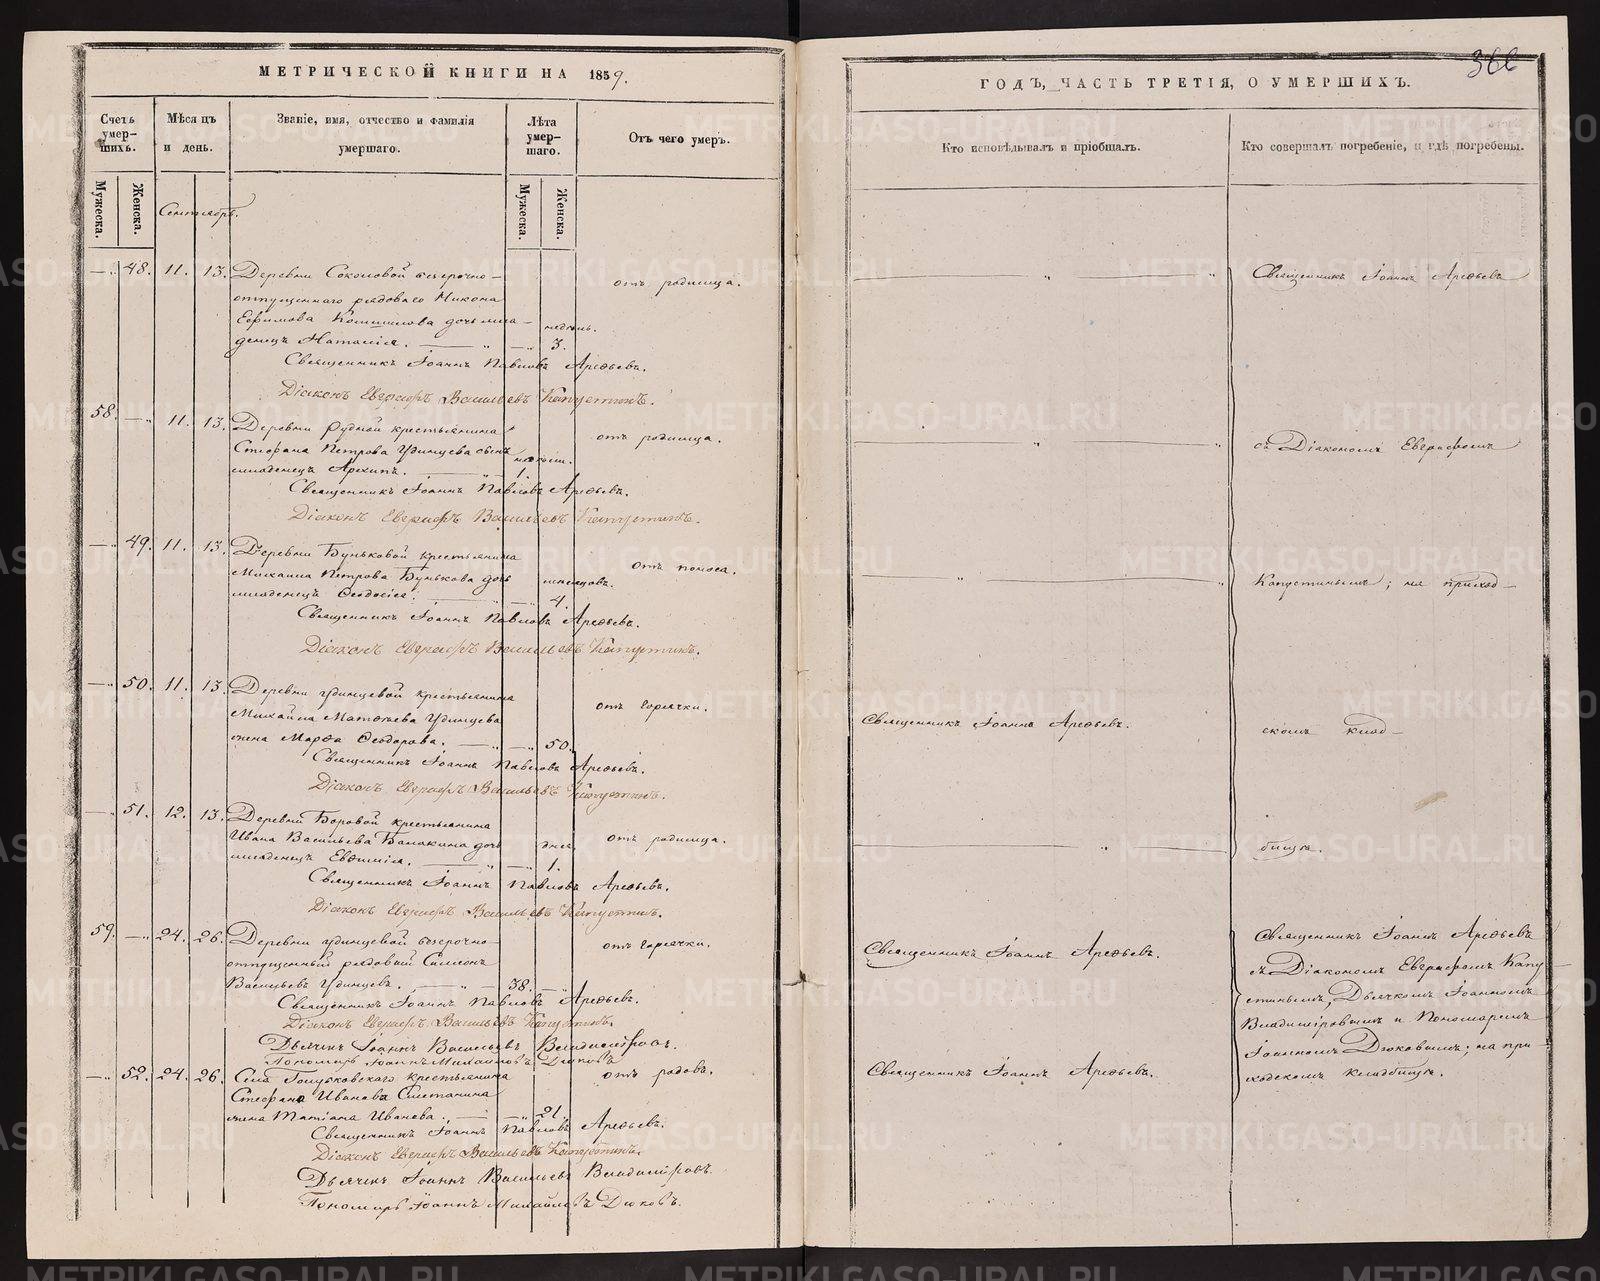 МЕТРИЧЕСКОЙ КНИГИ НА 1859.
Счетъ умер-шихъ.
Мѣсяцъ и день.
Званіе, имя, отчество и фамилія умершаго.
Лѣта умер-шаго.
Отъ чего умеръ.
Мужеска.
Женска.
Мужеска.
Женска.
Сентябрь.
48. 11. 13. Деревни Соколовой безсрочно-
отпущеннаго рядоваго Никона
Ефимова дочь мла-
денецъ Наталія. недѣль. 3. отъ родимца.
Священникъ Іоаннъ Павловъ Арефьевъ.
Діаконъ Евграфъ Васильевъ Капустинъ.
58. 11. 13. Деревни Рудной крестьянина
Стефана Петрова Удинцева сынъ
младенецъ Архипъ. 1. отъ родимца.
Священникъ Іоаннъ Павловъ Арефьевъ.
Діаконъ Евграфъ Васильевъ Капустинъ.
49. 11. 13. Деревни Буньковой крестьянина
Михаила Петрова Бунькова дочь
младенецъ Феодосія. мѣсяцовъ. 4. отъ поноса.
Священникъ Іоаннъ Павловъ Арефьевъ.
Діаконъ Евграфъ Васильевъ Капустинъ.
50. 11. 13. Деревни Удинцевой крестьянина
Михайла Матѳеева Удинцева
жена Марфа Феодорова. 50. отъ горячки.
Священникъ Іоаннъ Павловъ Арефьевъ.
Діаконъ Евграфъ Васильевъ Капустинъ.
51. 12. 13. Деревни Боровой крестьянина
Ивана Васильева Балакина дочь
младенецъ Евфимія. дня. 1. отъ родимца.
Священникъ Іоаннъ Павловъ Арефьевъ.
Діаконъ Евграфъ Васильевъ Капустинъ.
59. 24. 26. Деревни Удинцевой безсрочно
отпущенный рядовый Симеонъ
Васильевъ Удинцевъ. 38. отъ горячки.
Священникъ Іоаннъ Павловъ Арефьевъ.
Діаконъ Евграфъ Васильевъ Капустинъ.
Дьячекъ Іоаннъ Васильевъ Владиміровъ.
Пономарь Іоаннъ Михайловъ Дюковъ.
52. 24. 26. Села Голубковскаго крестьянина
Стефана Иванова Сметанина
жена Татіана Иванова. 21. отъ родовъ.
Священникъ Іоаннъ Павловъ Арефьевъ.
Діаконъ Евграфъ Васильевъ Капустинъ.
Дьячекъ Іоаннъ Васильевъ Владиміровъ.
Пономарь Іоаннъ Михайловъ Дюковъ.
366
ГОДЪ, ЧАСТЬ ТРЕТІЯ, О УМЕРШИХЪ.
Кто исповѣдывалъ и пріобщалъ.
Кто совершалъ погребеніе, и гдѣ погребены.
Священникъ Іоаннъ Арефьевъ
съ Діакономъ Евграфомъ
Капустинымъ; на приход-
Священникъ Іоаннъ Арефьевъ.
скомъ клад-
бищѣ.
Священникъ Іоаннъ Арефьевъ.
Священникъ Іоаннъ Арефьевъ
съ Діакономъ Евграфомъ Капу
стинымъ, Дьячкомъ Іоанномъ
Владиміровымъ и Пономаремъ
Іоанномъ Дюковымъ; на при
ходскомъ кладбищѣ.
Священникъ Іоаннъ Арефьевъ.
METRIKI.GASO-URAL.RU